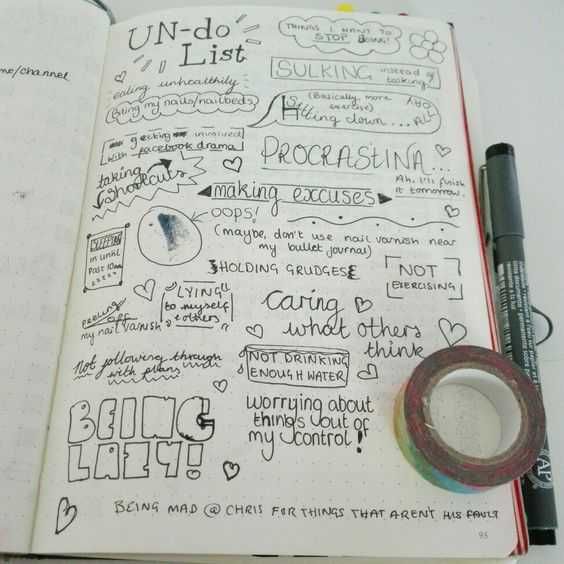 me/channel
UN-do
List
THINGS I WANT TO
STOP DOING!
eating unhealthily
SULKING instead of
talking.
Biting my nails/nailbeds
(Basically, more
exercise)
Sitting down... ALL
DAY
getting involved
with facebook drama
PROCRASTINA...
Ah, I'll finish
it tomorrow.
taking
shortcuts
making excuses
OOPS!
(maybe, don't use nail varnish near
my bullet journal)
SLEEPING
in until
Past 10am
HOLDING GRUDGES
NOT
EXERCISING
LYING
to myself
& others
peeling
off
my nail varnish
Caring
what others
think
Not following through
with plans
NOT DRINKING
ENOUGH WATER
BEING
LAZY!
worrying about
things out of
my control!
BEING MAD @ CHRIS FOR THINGS THAT AREN'T HIS FAULT
95